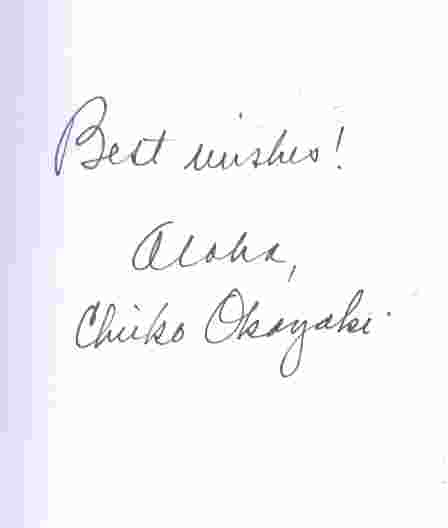 Best wishes!
Aloha,
Chieko Okazaki